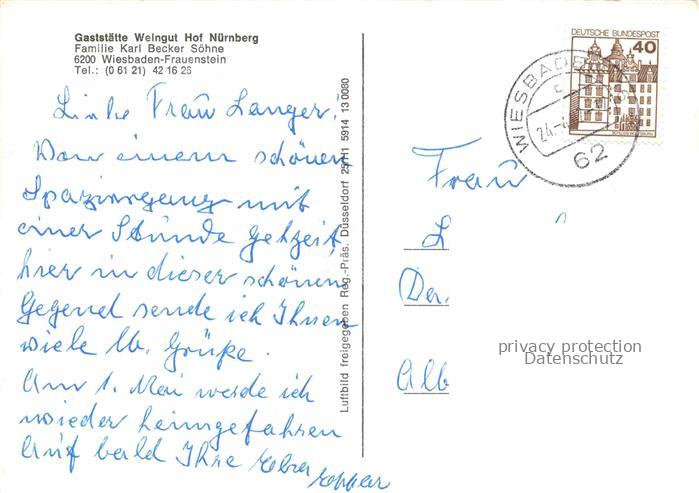 Gaststätte Weingut Hof Nürnberg
Familie Karl Becker Söhne
6200 Wiesbaden-Frauenstein
Tel.: (0 61 21) 42 16 26
Liebe Frau Langer.
Von einem schönen
Spaziergang mit
einer Stunde Gehzeit,
hier in dieser schönen
Gegend sende ich Ihnen
viele lb. Grüße.
Am 1. Mai werde ich
wieder heimgefahren
Auf bald Ihre
Luftbild freigegeben Reg.-Präs. Düsseldorf 25 H1 5914 13 0080
DEUTSCHE BUNDESPOST
40
WIESBADEN
62
Frau
L
Der.
Alb
privacy protection
Datenschutz